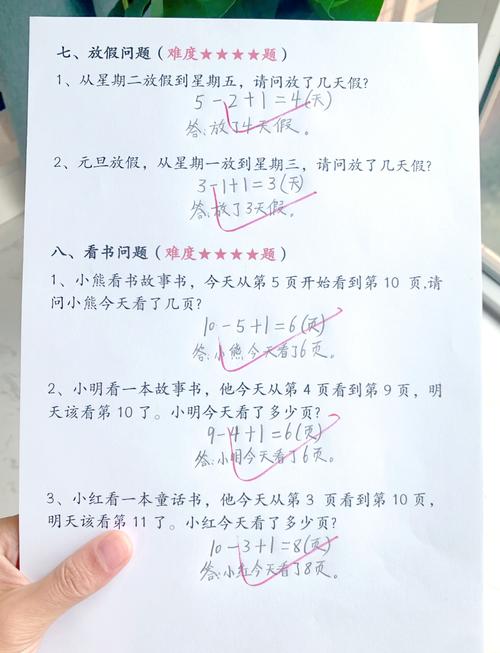 七、放假问题（难度★★★★题）
1、从星期二放假到星期五，请问放了几天假？
5-2+1=4(天)
答:放了4天假。
2、元旦放假，从星期一放到星期三，请问放了几天假？
3-1+1=3(天)
答:放了3天假。
八、看书问题（难度★★★★题）
1、小熊看书故事书，今天从第 5 页开始看到第 10 页,请
问小熊今天看了几页？
10-5+1=6(页)
答:小熊今天看了6页。
2、小明看一本故事书，他今天从第 4 页看到第 9 页，明
天该看第 10 了。小明今天看了多少页？
9-4+1=6(页)
答:小明今天看了6页。
3、小红看一本童话书，他今天从第 3 页看到第 10 页，
明天该看第 11 了。小红今天看了多少页？
10-3+1=8(页)
答:小红今天看了8页。